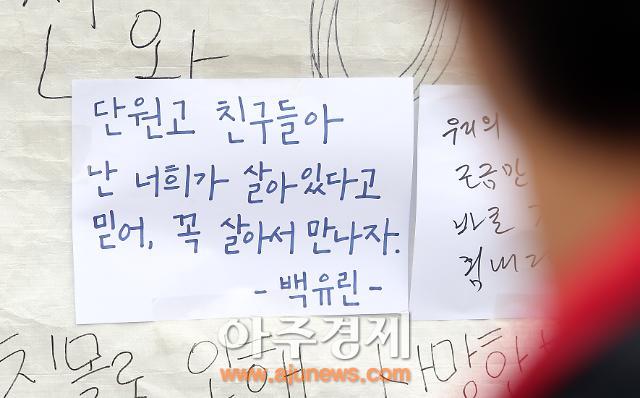 와
단원고 친구들아
난 너희가 살아있다고
믿어, 꼭 살아서 만나자.
- 백유린 -
우리의
조금만
바로
힘내
아주경제
www.ajunews.com
침몰로 인해 사망한